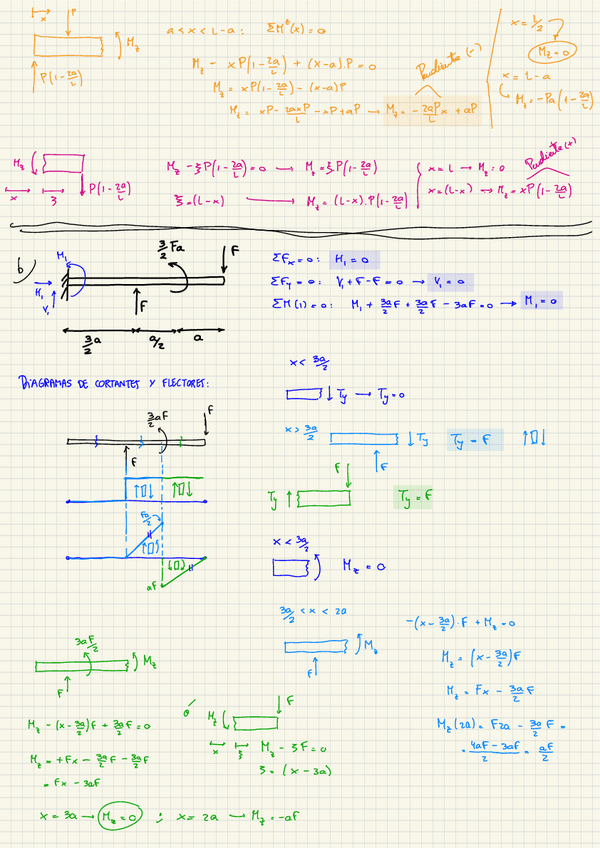 x
P
P(1-2a/L)
M_z
a<x<L-a: ΣM^t(x)=0
M_z - xP(1-2a/L) + (x-a)·P=0
M_z = xP(1-2a/L) - (x-a)P
M_z = xP - 2axP/L - xP + aP → M_z = -2aP/L x + aP
Pendiente (-)
x=L/2
M_z=0
x=L-a
M_z=-Pa(1-2a/L)
M_z
x
ξ
P(1-2a/L)
M_z - ξP(1-2a/L)=0 → M_z=ξP(1-2a/L)
ξ=(L-x) → M_z=(L-x)·P(1-2a/L)
x=L → M_z=0
x=(L-x) → M_z=xP(1-2a/L)
Pendiente (+)
b)
M_1
H_1
V_1
3/2 Fa
F
F
3/2 a
a/2
a
ΣF_x=0: H_1=0
ΣF_y=0: V_1+F-F=0 → V_1=0
ΣM(1)=0: M_1 + 3a/2 F + 3a/2 F - 3aF=0 → M_1=0
DIAGRAMAS DE CORTANTES Y FLECTORES:
x<3a/2
Ty → Ty=0
x>3a/2
Ty
F
Ty=F
F
Ty
Ty=F
3aF/2
F
F
Fa/2
aF
x<3a/2
M_z=0
3a/2<x<2a
M_z
F
-(x-3a/2)·F+M_z=0
M_z=(x-3a/2)F
M_z=Fx-3a/2 F
M_z(2a)=F2a-3a/2 F=
=4aF-3aF/2=aF/2
3aF/2
M_z
F
M_z-(x-3a/2)F+3a/2 F=0
M_z=+Fx-3a/2 F-3a/2 F
=Fx-3aF
x=3a → M_z=0 ; x=2a → M_z=-aF
o
M_z
F
x
ξ
M_z-ξF=0
ξ=(x-3a)